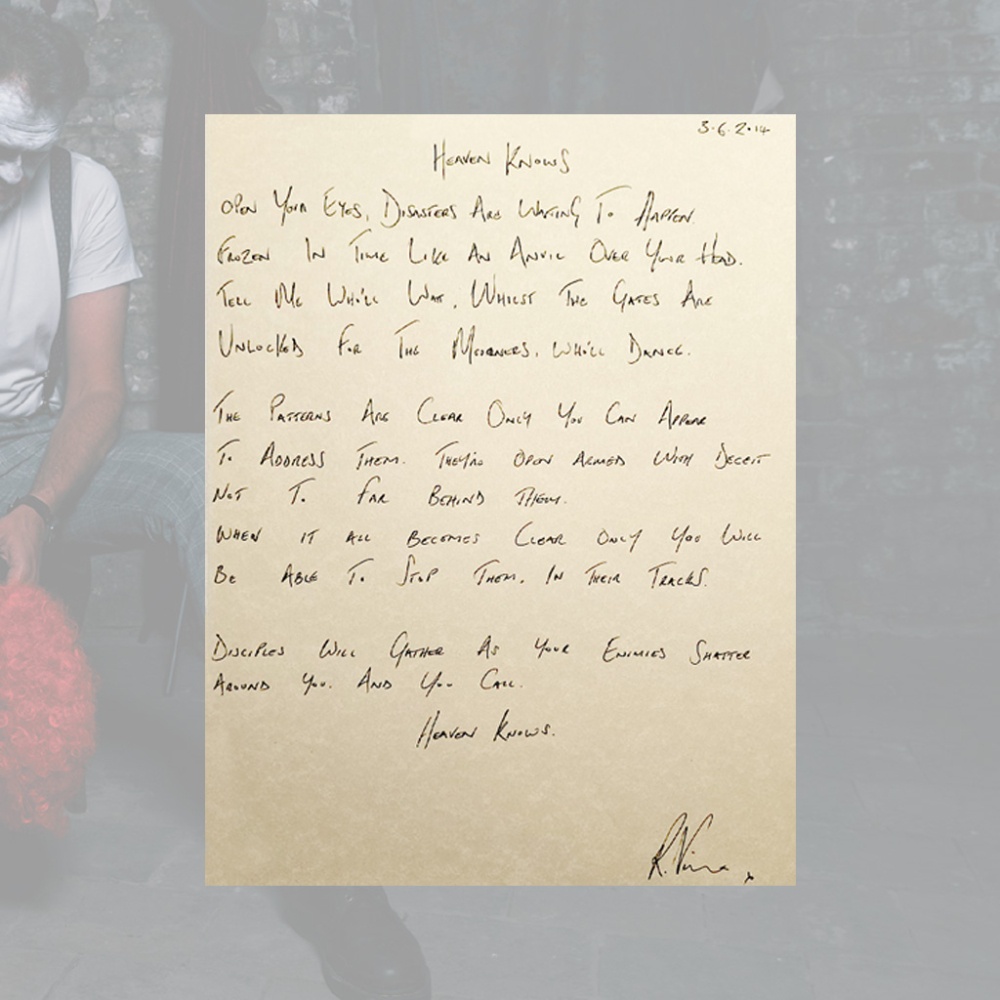 3.6.2.14
Heaven Knows
Open Your Eyes, Disasters Are Waiting To Happen.
Frozen In Time Like An Anvil Over Your Head.
Tell Me Who'll Wait, Whilst The Gates Are
Unlocked For The Mourners, Who'll Dance.
The Patterns Are Clear Only You Can Appear
To Address Them. They're Open Armed With Deceit
Not To Far Behind Them.
When It All Becomes Clear Only You Will
Be Able To Stop Them, In Their Tracks.
Disciples Will Gather As Your Enemies Shatter
Around You. And You Call.
Heaven Knows.
R.
x